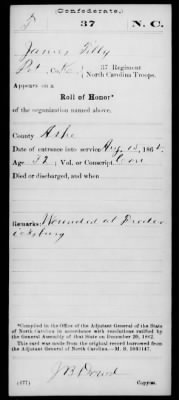 (Confederate.)
37 N. C.
James Tilly
Pvt, Co. K, 37 Regiment
North Carolina Troops.
Appears on a
Roll of Honor*
of the organization named above.
County Ashe
Date of entrance into service Aug 15, 1862.
Age 32; Vol. or Conscript Con
Died or discharged, and when
Remarks: Wounded at Freder
icksburg
*Compiled in the Office of the Adjutant General of the State
of North Carolina in accordance with resolutions ratified by
the General Assembly of that State on December 20, 1862.
This card was made from the original record borrowed from
the Adjutant General of North Carolina.—M. S.
(677) Copyist.